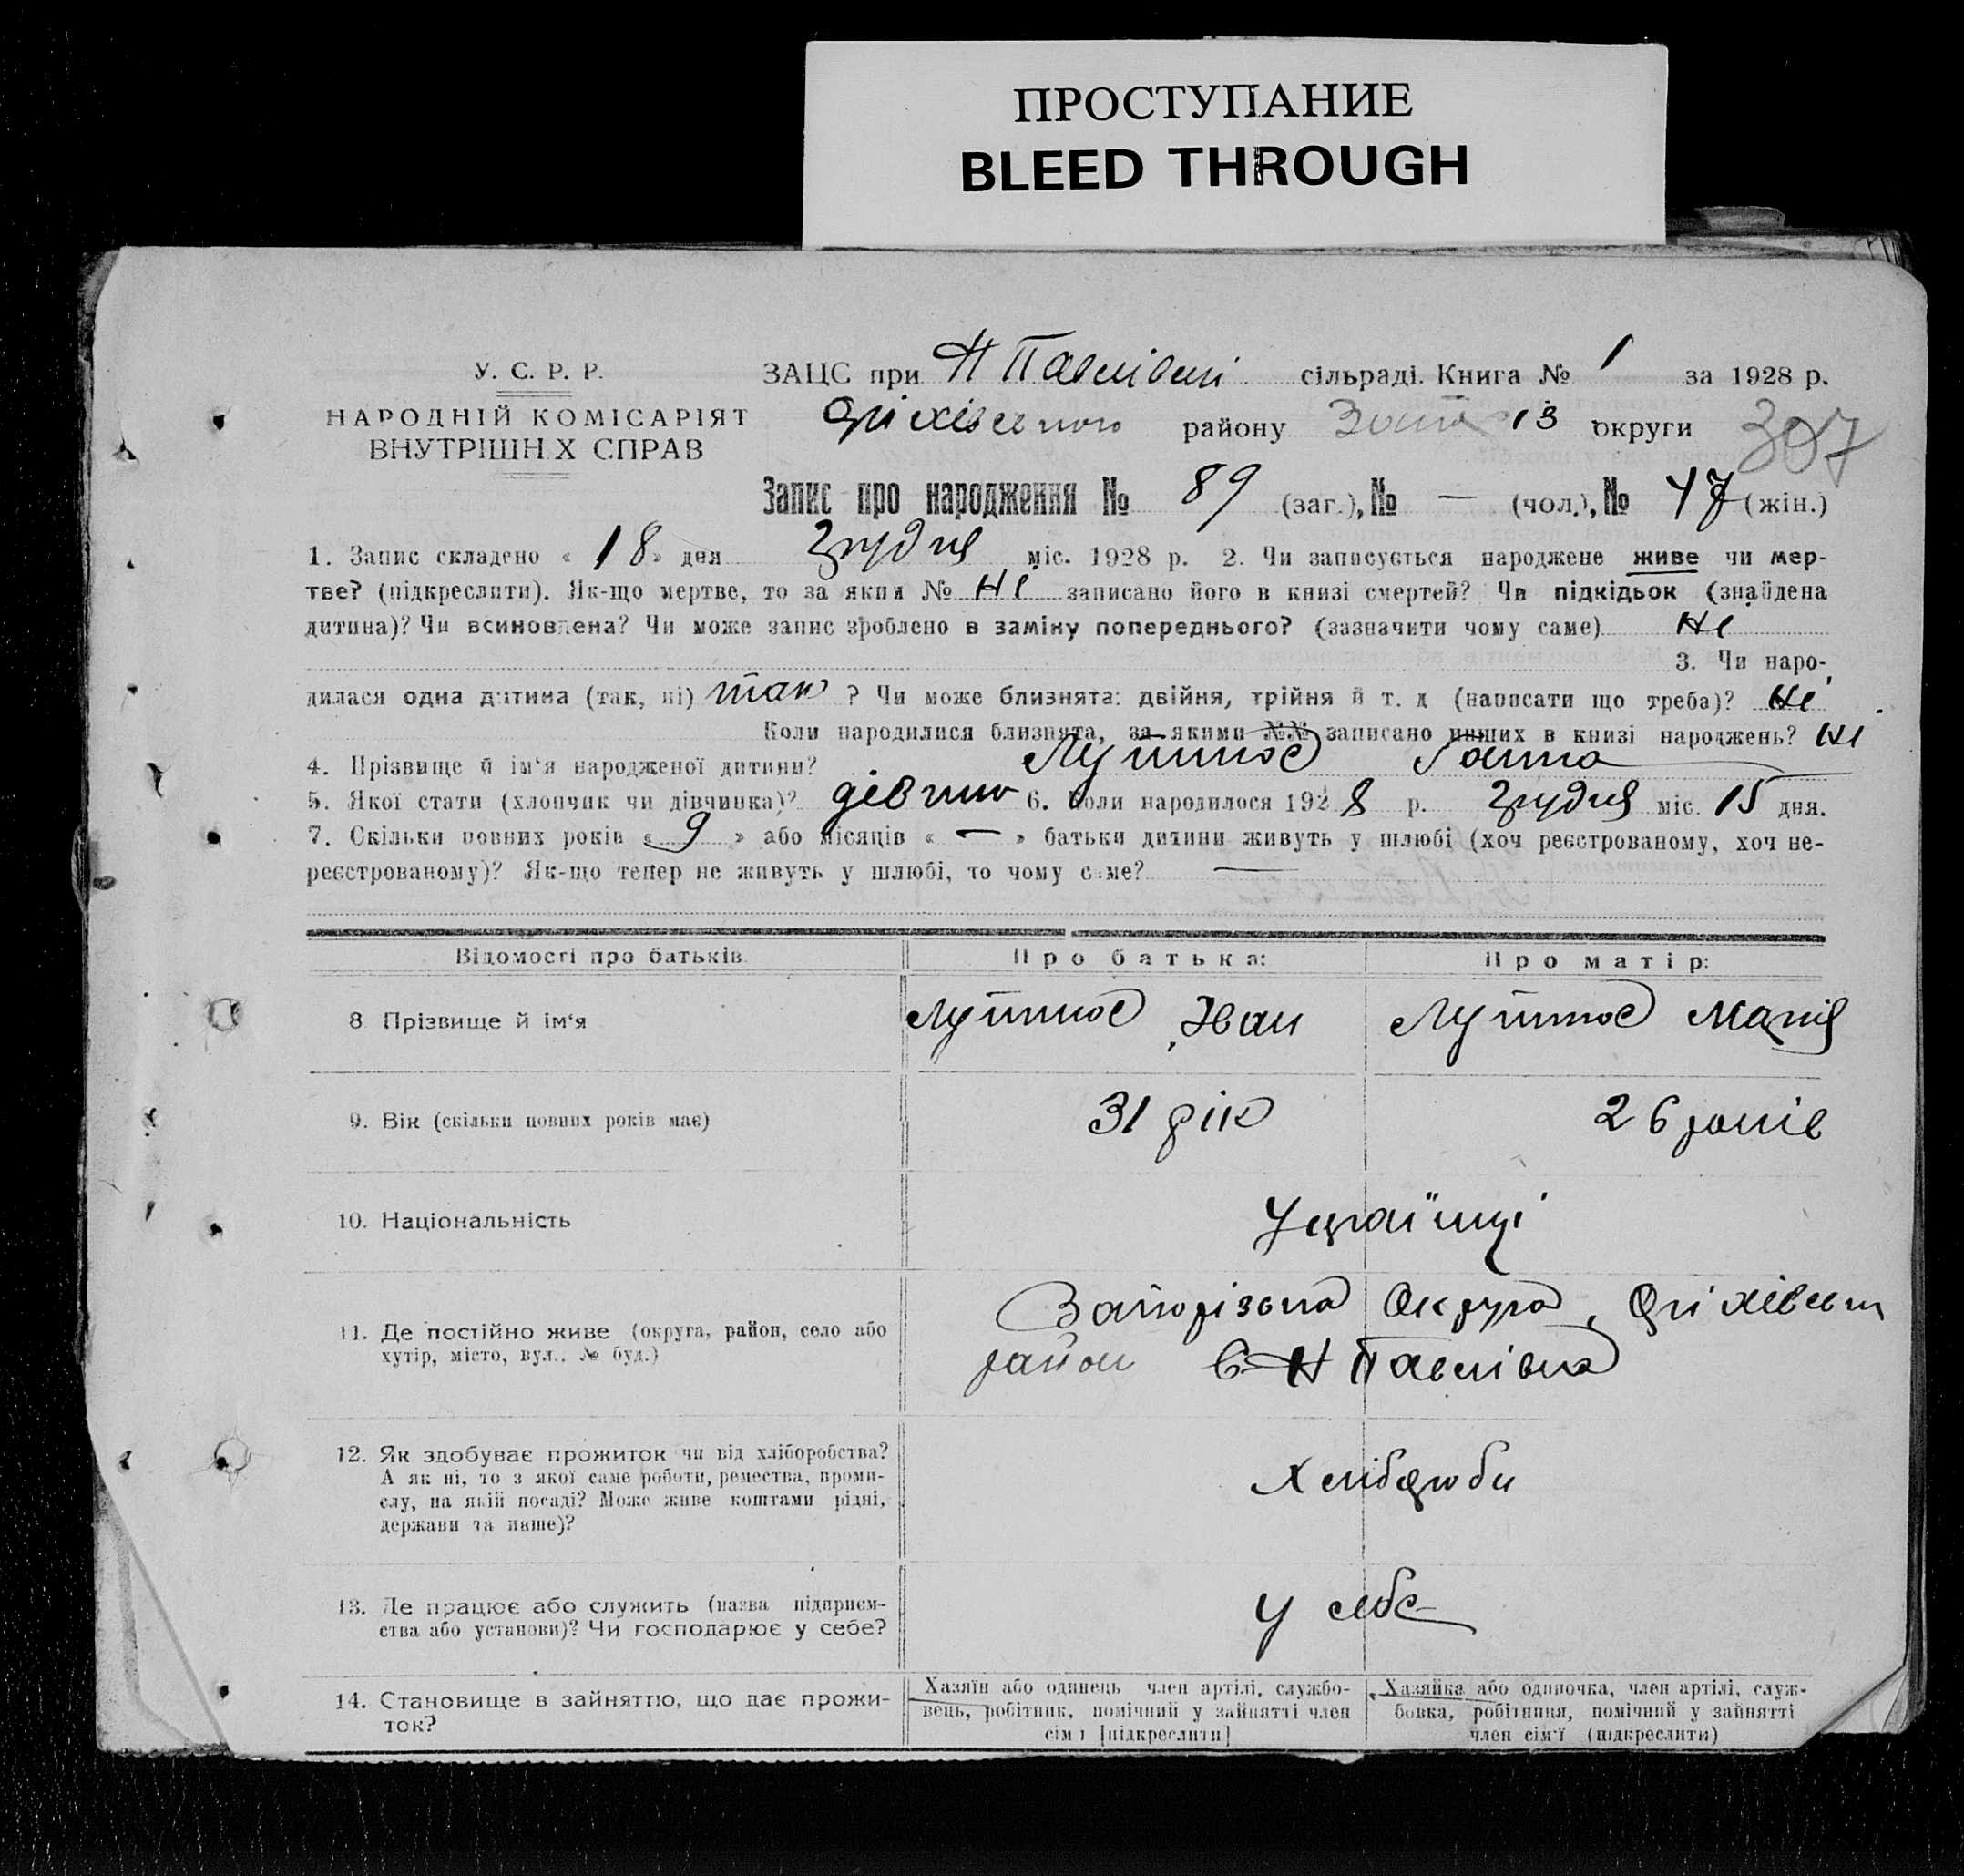 ПРОСТУПАНИЕ
BLEED THROUGH
У. С. Р. Р.
НАРОДНІЙ КОМІСАРІЯТ
ВНУТРІШН Х СПРАВ
ЗАЦС при Н Павлівкі сільраді. Книга № 1 за 1928 р.
Оріхівського району округи
307
Запис про народження № 89 (заг.), № — (чол.), № 47 (жін.)
1. Запис складено « 18 » дня Грудня міс. 1928 р. 2. Чи записується народжене живе чи мер-
тве? (підкреслити). Як-що мертве, то за яким № Ні записано його в книзі смертей? Чи підкідьок (знайдена
дитина)? Чи всиновлена? Чи може запис зроблено в заміну попереднього? (зазначити чому саме) Ні
3. Чи наро-
дилася одна дитина (так, ні) так ? Чи може близнята: двійня, трійня й т. д (написати що треба)? Ні
Коли народилися близнята, за якими №№ записано инших в книзі народжень? Ні
4. Прізвище й ім'я народженої дитини? Ганна
5. Якої стати (хлопчик чи дівчинка)? 6. Коли народилося 1928 р. Грудня міс. 15 дня.
7. Скільки повних років « 9 » або місяців « — » батьки дитини живуть у шлюбі (хоч реєстрованому, хоч не-
реєстрованому)? Як-що тепер не живуть у шлюбі, то чому саме? —
Відомості про батьків
Про батька:
Про матір:
8 Прізвище й ім'я
Іван
Марія
9. Вік (скільки повних років має)
31 рік
26 років
10. Національність
Українці
11. Де постійно живе (округа, район, село або
хутір, місто, вул.. № буд.)
Запорізька Округа, Оріхівськ
район с Н Павлівка
12. Як здобуває прожиток чи від хліборобства?
А як ні, то з якої саме роботи, ремества, проми-
слу, на якій посаді? Може живе коштами рідні,
держави та инше)?
Хлібороби
13. Де працює або служить (назва підприєм-
ства або установи)? Чи господарює у себе?
у себе
14. Становище в зайняттю, що дає прожи-
ток?
Хазяїн або одинець член артілі, службо-
вець, робітник, помічний у зайнятті член
сім ї [підкреслити]
Хазяйка або одиночка, член артілі, служ-
бовка, робітниця, помічний у зайнятті
член сім'ї (підкреслити)